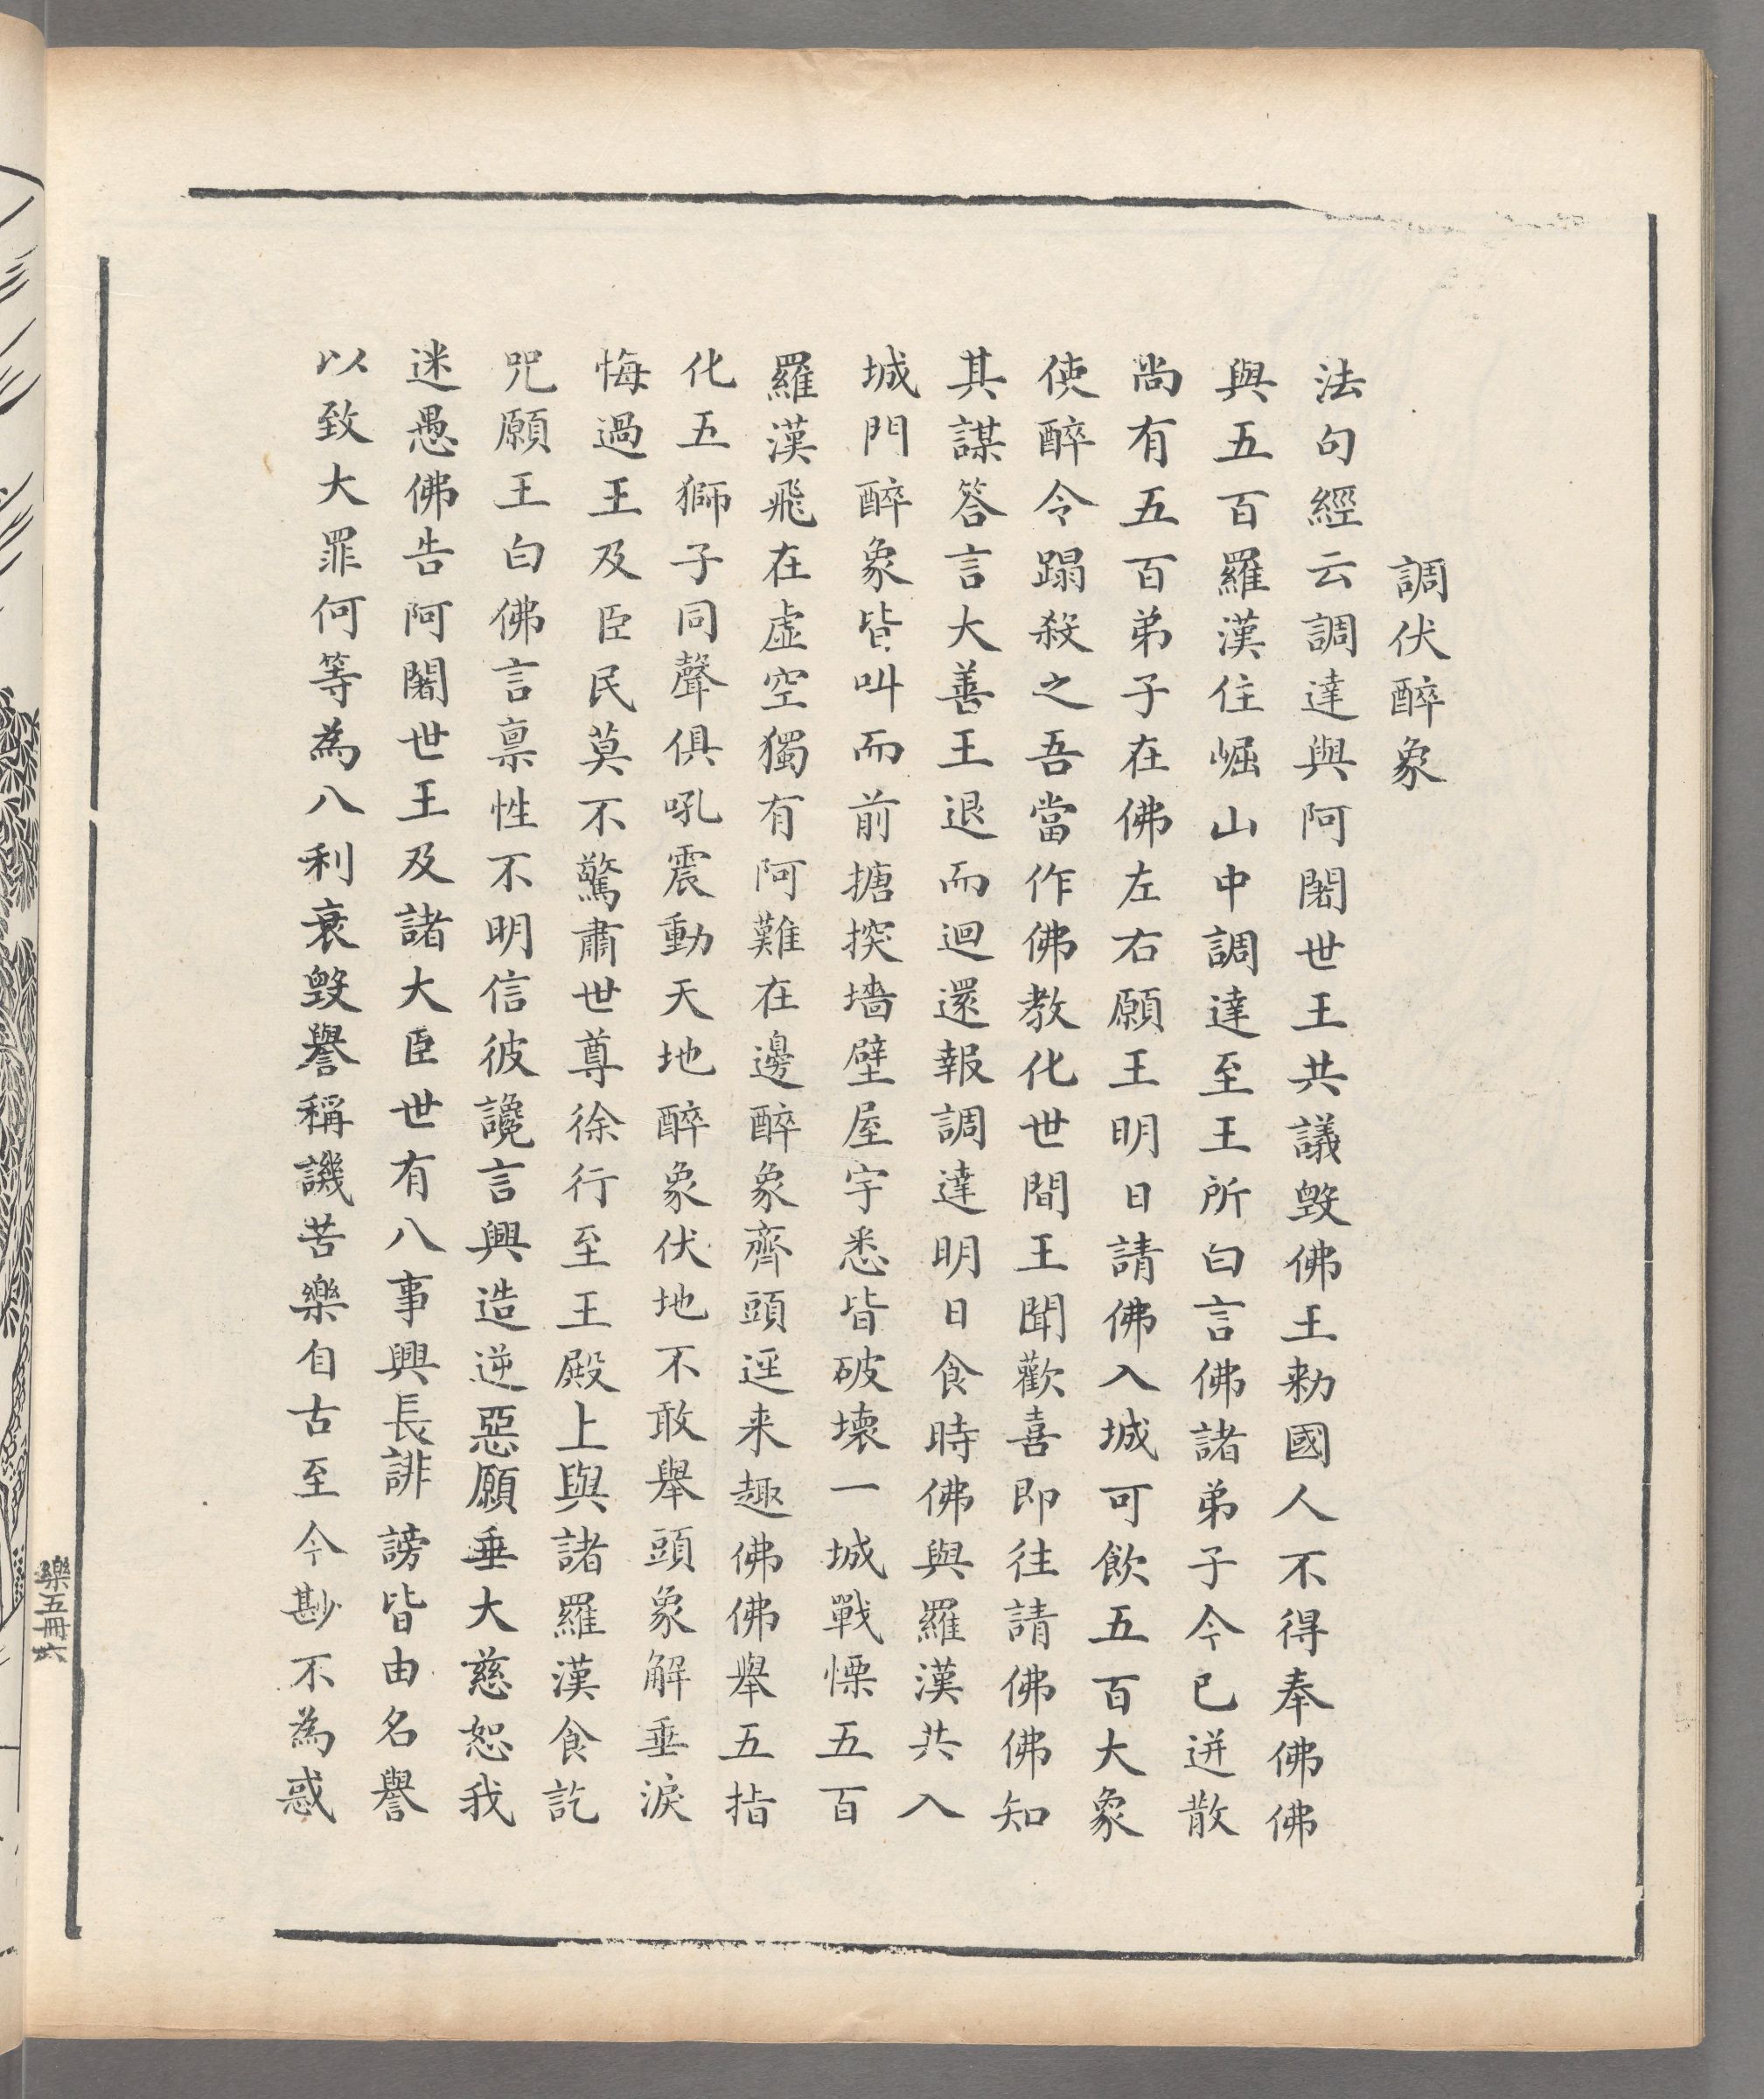 調伏醉象
法句經云調達與阿闍世王共議毀佛王勑國人不得奉佛佛
與五百羅漢住崛山中調達至王所白言佛諸弟子今已迸散
尚有五百弟子在佛左右願王明日請佛入城可飲五百大象
使醉令蹋殺之吾當作佛教化世間王聞歡喜即往請佛佛知
其謀答言大善王退而迴還報調達明日食時佛與羅漢共入
城門醉象皆叫而前搪揬墻壁屋宇悉皆破壞一城戰慄五百
羅漢飛在虛空獨有阿難在邊醉象齊頭逕来趣佛佛舉五指
化五獅子同聲俱吼震動天地醉象伏地不敢舉頭象解垂淚
悔過王及臣民莫不驚肅世尊徐行至王殿上與諸羅漢食訖
咒願王白佛言禀性不明信彼讒言興造逆惡願垂大慈恕我
迷愚佛告阿闍世王及諸大臣世有八事興長誹謗皆由名譽
以致大罪何等為八利衰毀譽稱譏苦樂自古至今尠不為惑
樂五冊六